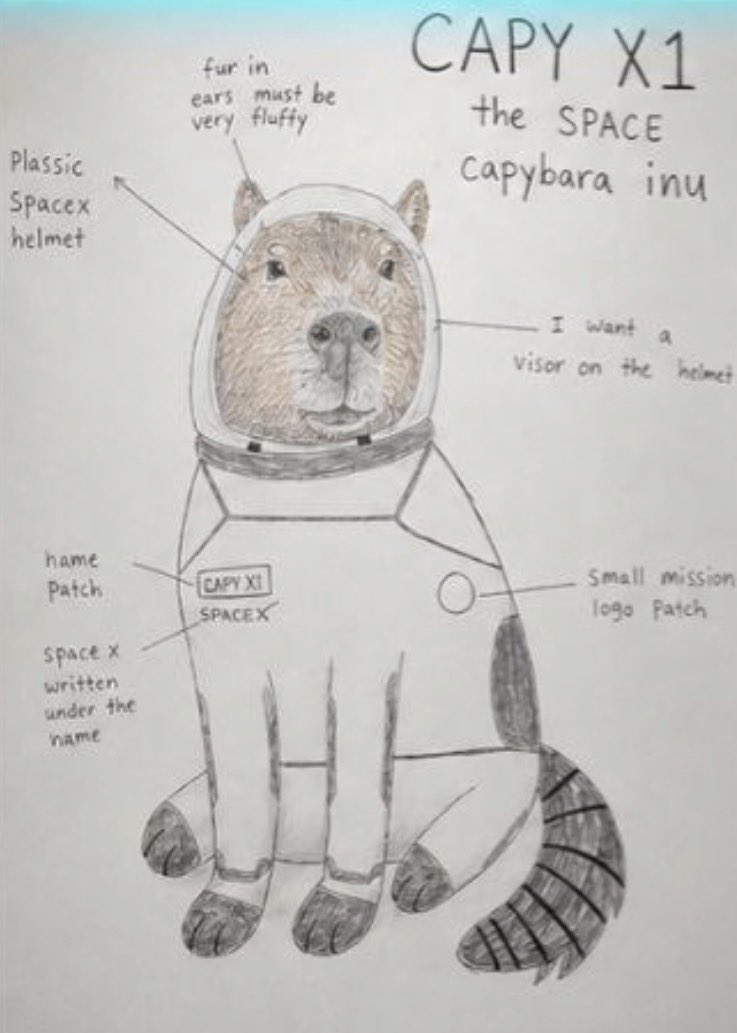 CAPY X1
the SPACE
capybara inu
fur in
ears must be
very fluffy
Plassic
Spacex
helmet
I want a
visor on the helmet
name
Patch
CAPY X1
SPACEX
Small mission
logo Patch
space x
written
under the
name